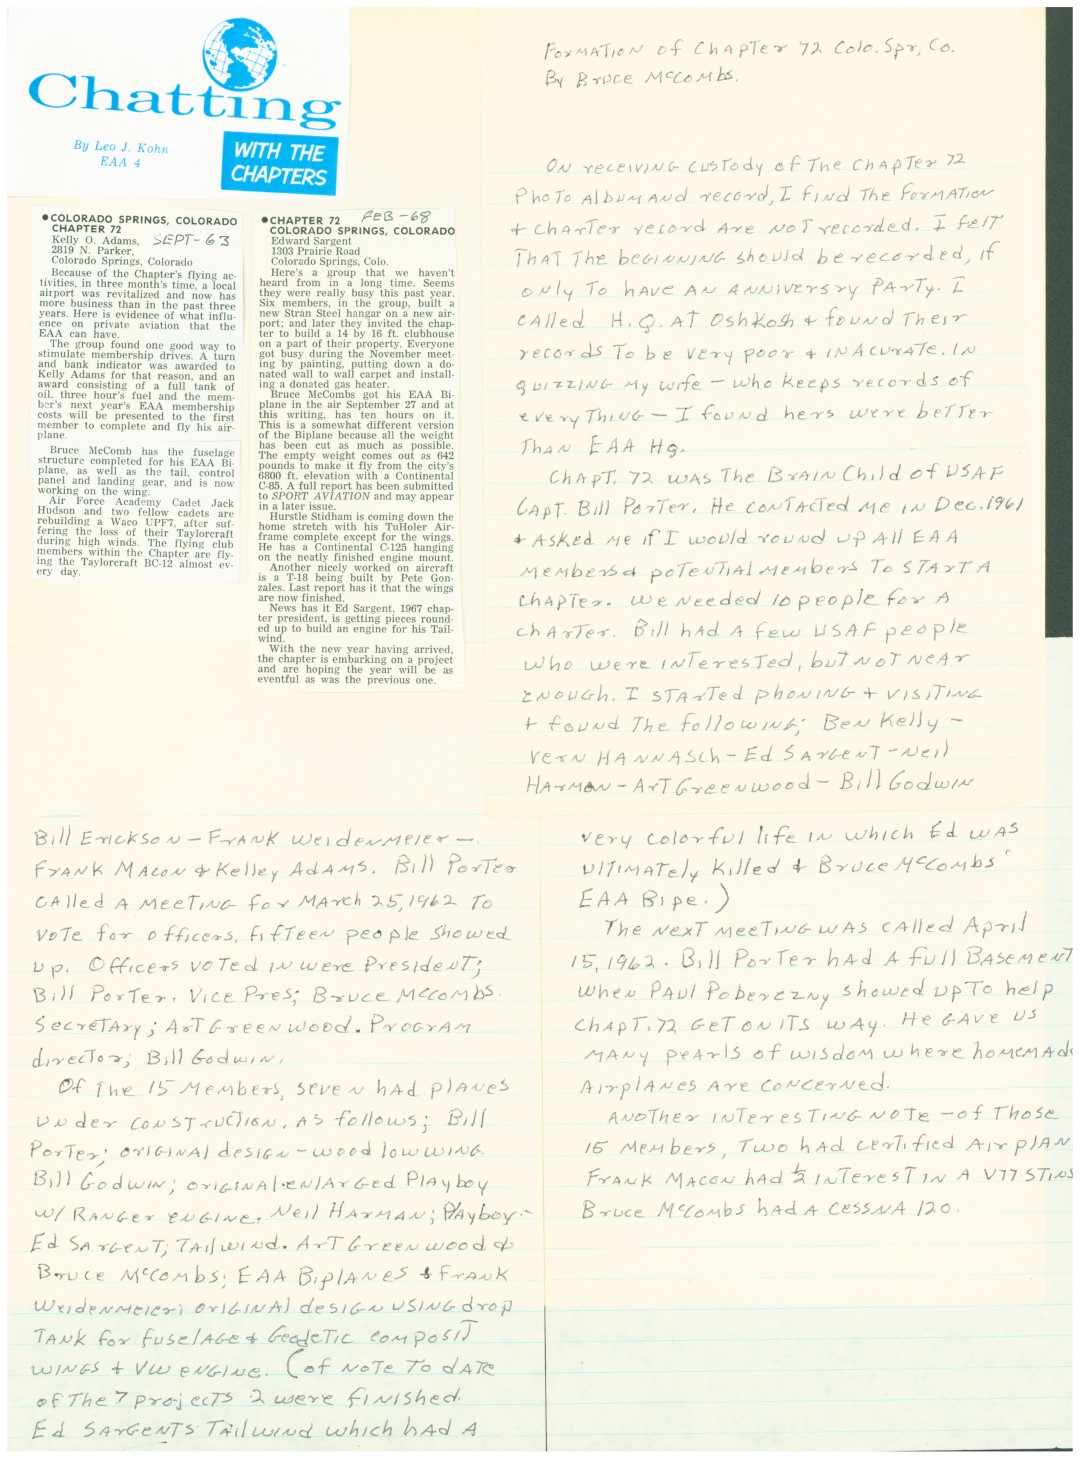 Chatting
By Leo J. Kohn
EAA 4
WITH THE
CHAPTERS
•COLORADO SPRINGS, COLORADO
CHAPTER 72
Kelly O. Adams, SEPT-63
2819 N. Parker,
Colorado Springs, Colorado
Because of the Chapter's flying ac-
tivities, in three month's time, a local
airport was revitalized and now has
more business than in the past three
years. Here is evidence of what influ-
ence on private aviation that the
EAA can have.
The group found one good way to
stimulate membership drives. A turn
and bank indicator was awarded to
Kelly Adams for that reason, and an
award consisting of a full tank of
oil, three hour's fuel and the mem-
ber's next year's EAA membership
costs will be presented to the first
member to complete and fly his air-
plane.
Bruce McComb has the fuselage
structure completed for his EAA Bi-
plane, as well as the tail, control
panel and landing gear, and is now
working on the wing.
Air Force Academy Cadet Jack
Hudson and two fellow cadets are
rebuilding a Waco UPF7, after suf-
fering the loss of their Taylorcraft
during high winds. The flying club
members within the Chapter are fly-
ing the Taylorcraft BC-12 almost ev-
ery day.
•CHAPTER 72 FEB-68
COLORADO SPRINGS, COLORADO
Edward Sargent
1303 Prairie Road
Colorado Springs, Colo.
Here's a group that we haven't
heard from in a long time. Seems
they were really busy this past year.
Six members, in the group, built a
new Stran Steel hangar on a new air-
port; and later they invited the chap-
ter to build a 14 by 16 ft. clubhouse
on a part of their property. Everyone
got busy during the November meet-
ing by painting, putting down a do-
nated wall to wall carpet and install-
ing a donated gas heater.
Bruce McCombs got his EAA Bi-
plane in the air September 27 and at
this writing, has ten hours on it.
This is a somewhat different version
of the Biplane because all the weight
has been cut as much as possible.
The empty weight comes out as 642
pounds to make it fly from the city's
6800 ft. elevation with a Continental
C-85. A full report has been submitted
to SPORT AVIATION and may appear
in a later issue.
Hurstle Stidham is coming down the
home stretch with his TuHoler Air-
frame complete except for the wings.
He has a Continental C-125 hanging
on the neatly finished engine mount.
Another nicely worked on aircraft
is a T-18 being built by Pete Gon-
zales. Last report has it that the wings
are now finished.
News has it Ed Sargent, 1967 chap-
ter president, is getting pieces round-
ed up to build an engine for his Tail-
wind.
With the new year having arrived,
the chapter is embarking on a project
and are hoping the year will be as
eventful as was the previous one.
Formation of Chapter 72 Colo. Spr, Co.
By Bruce McCombs.
On receiving custody of the Chapter 72
photo album and record, I find the formation
+ charter record are not recorded. I felt
that the beginning should be recorded, if
only to have an anniversry party. I
called H.Q. at Oshkosh + found their
records to be very poor + inacurate. In
quizzing my wife – who keeps records of
everything – I found hers were better
than EAA Hq.
Chapt. 72 was the brain child of USAF
Capt. Bill Porter. He contacted me in Dec. 1961
+ asked me if I would round up all EAA
members & potential members to start a
chapter. We needed 10 people for a
charter. Bill had a few USAF people
who were interested, but not near
enough. I started phoning + visiting
+ found the following; Ben Kelly –
Vern Hannasch – Ed Sargent – Neil
Harman – Art Greenwood – Bill Godwin
Bill Erickson – Frank Weidenmeier –
Frank Macon & Kelley Adams. Bill Porter
called a meeting for March 25, 1962 to
vote for officers, fifteen people showed
up. Officers voted in were President;
Bill Porter. Vice Pres; Bruce McCombs.
Secretary; Art Greenwood. Program
director; Bill Godwin.
Of the 15 members, seven had planes
under construction, as follows; Bill
Porter; original design – wood low wing.
Bill Godwin; original-enlarged Playboy
w/ Ranger engine. Neil Harman; Playboy –
Ed Sargent; Tailwind. Art Greenwood &
Bruce McCombs; EAA Biplanes & Frank
Weidenmeier; original design using drop
tank for fuselage + Geodetic composit
wings + VW engine. (of note to date
of the 7 projects 2 were finished
Ed Sargents Tailwind which had a
very colorful life in which Ed was
ultimately killed & Bruce McCombs'
EAA Bipe.)
The next meeting was called April
15, 1962. Bill Porter had a full basement
when Paul Poberezny showed up to help
Chapt. 72 get on its way. He gave us
many pearls of wisdom where homemade
airplanes are concerned.
Another interesting note – of those
15 members, two had certified airplan
Frank Macon had ½ interest in a V77 Stins
Bruce McCombs had a Cessna 120.